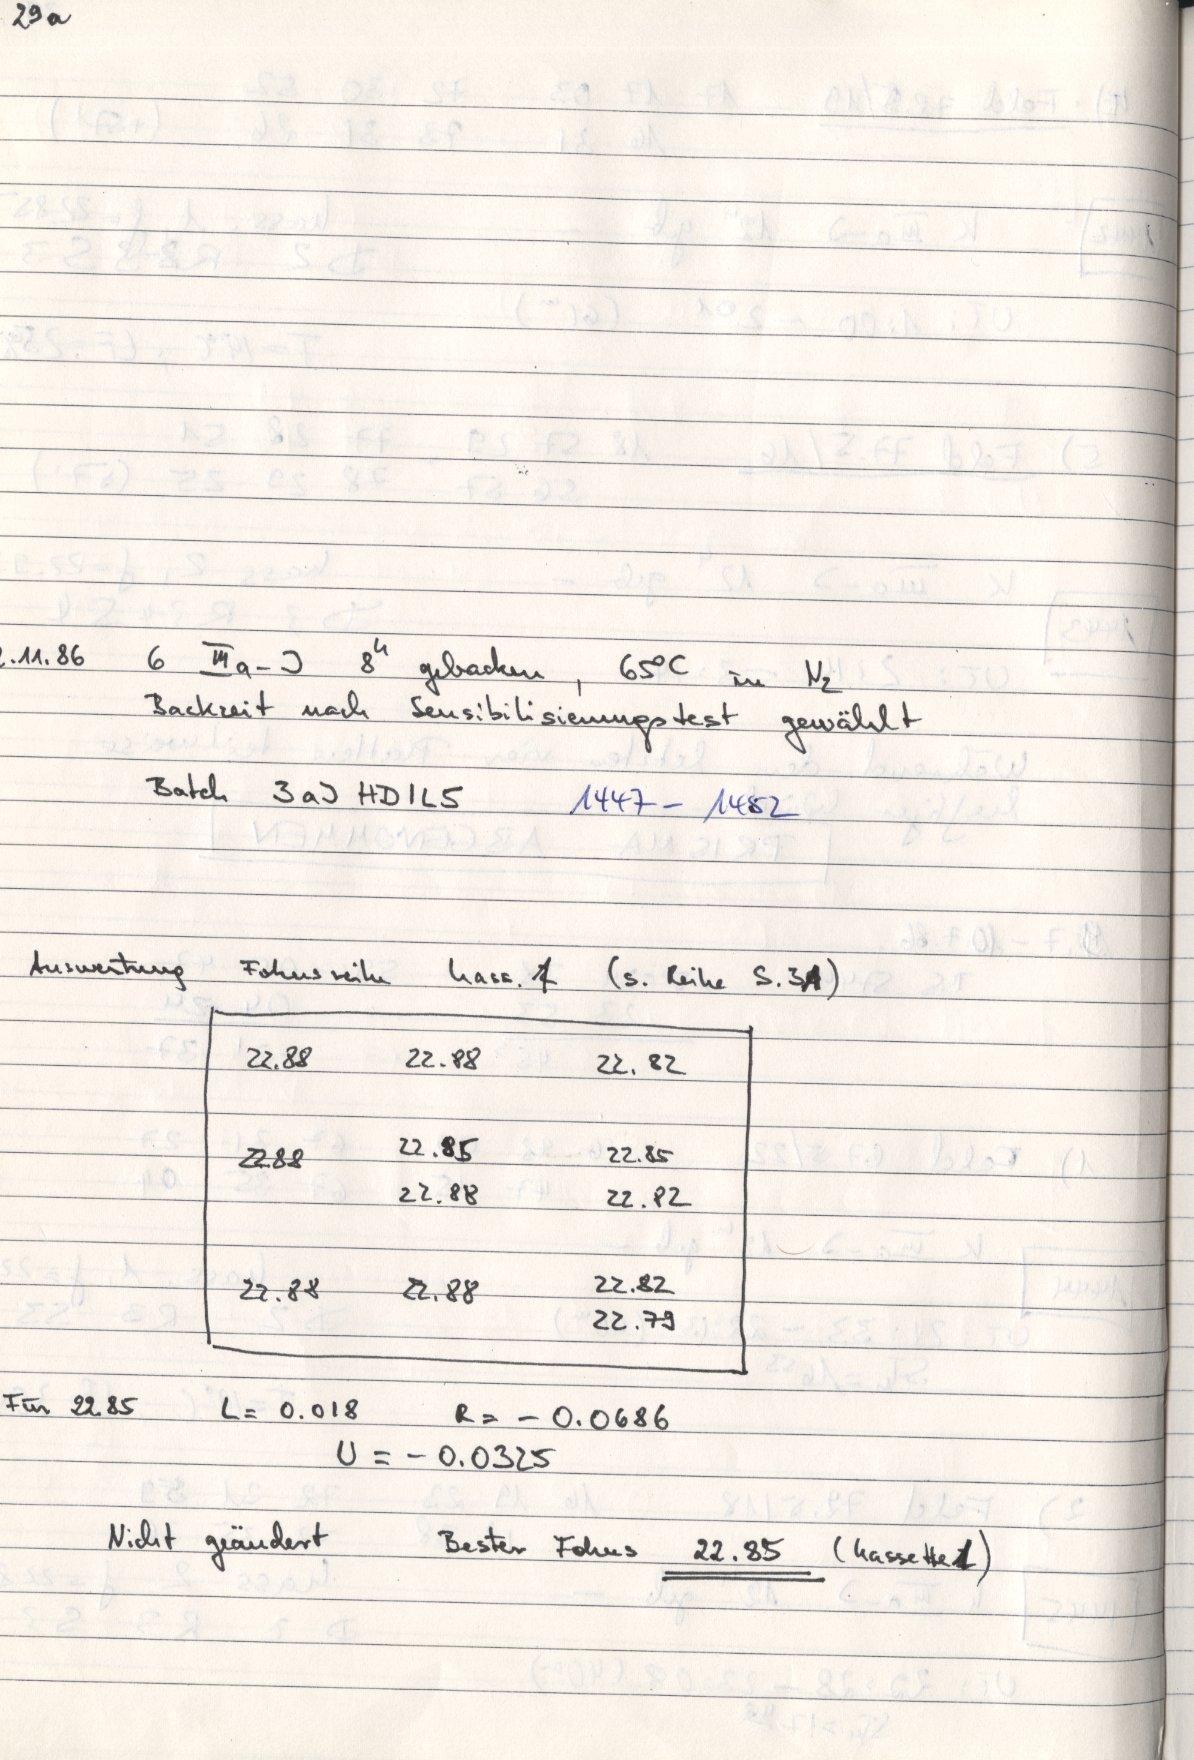 29a
.11.86 6 IIIa-J 8h gebacken, 65°C in N2
Backzeit nach Sensibilisierungstest gewählt
Batch 3aJ HD1L5 1447 - 1452
Auswertung Fokusreihe Kass. 1 (s. Reihe S. 31)
22.88 22.88 22.82
22.88 22.85 22.85
22.88 22.82
22.88 22.88 22.82
22.79
Für 22.85 L = 0.018 R = - 0.0686
U = - 0.0325
Nicht geändert Bester Fokus 22.85 (Kassette 1)